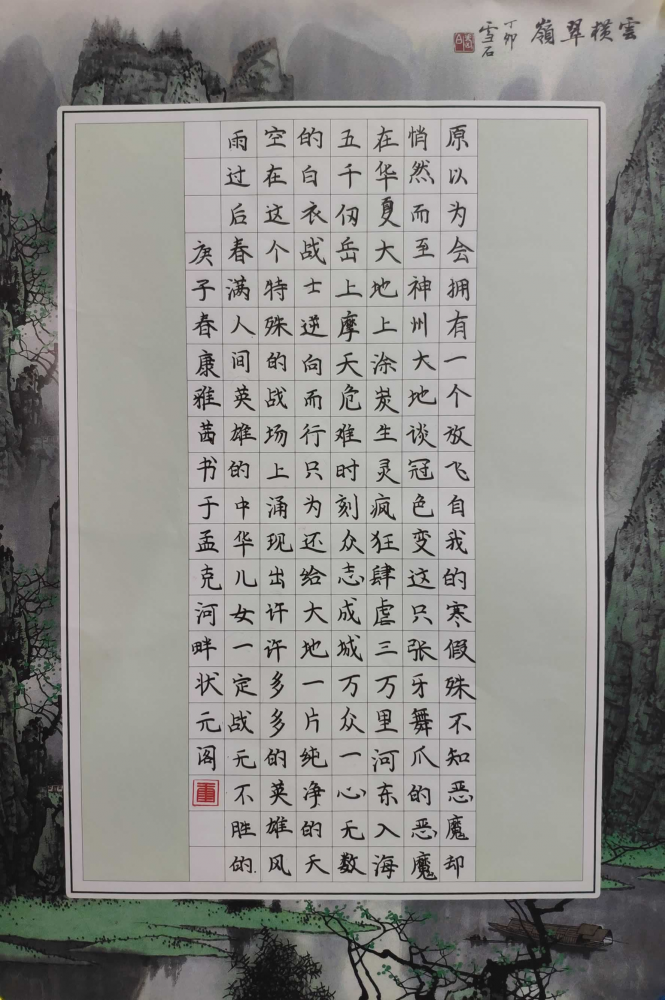 雲橫翠嶺
丁卯
雪石
原以为会拥有一个放飞自我的寒假殊不知恶魔却
悄然而至神州大地谈冠色变这只张牙舞爪的恶魔
在华夏大地上涂炭生灵疯狂肆虐三万里河东入海
五千仞岳上摩天危难时刻众志成城万众一心无数
的白衣战士逆向而行只为还给大地一片纯净的天
空在这个特殊的战场上涌现出许许多多的英雄风
雨过后春满人间英雄的中华儿女一定战无不胜的.
庚子春康雅茜书于孟克河畔状元阁